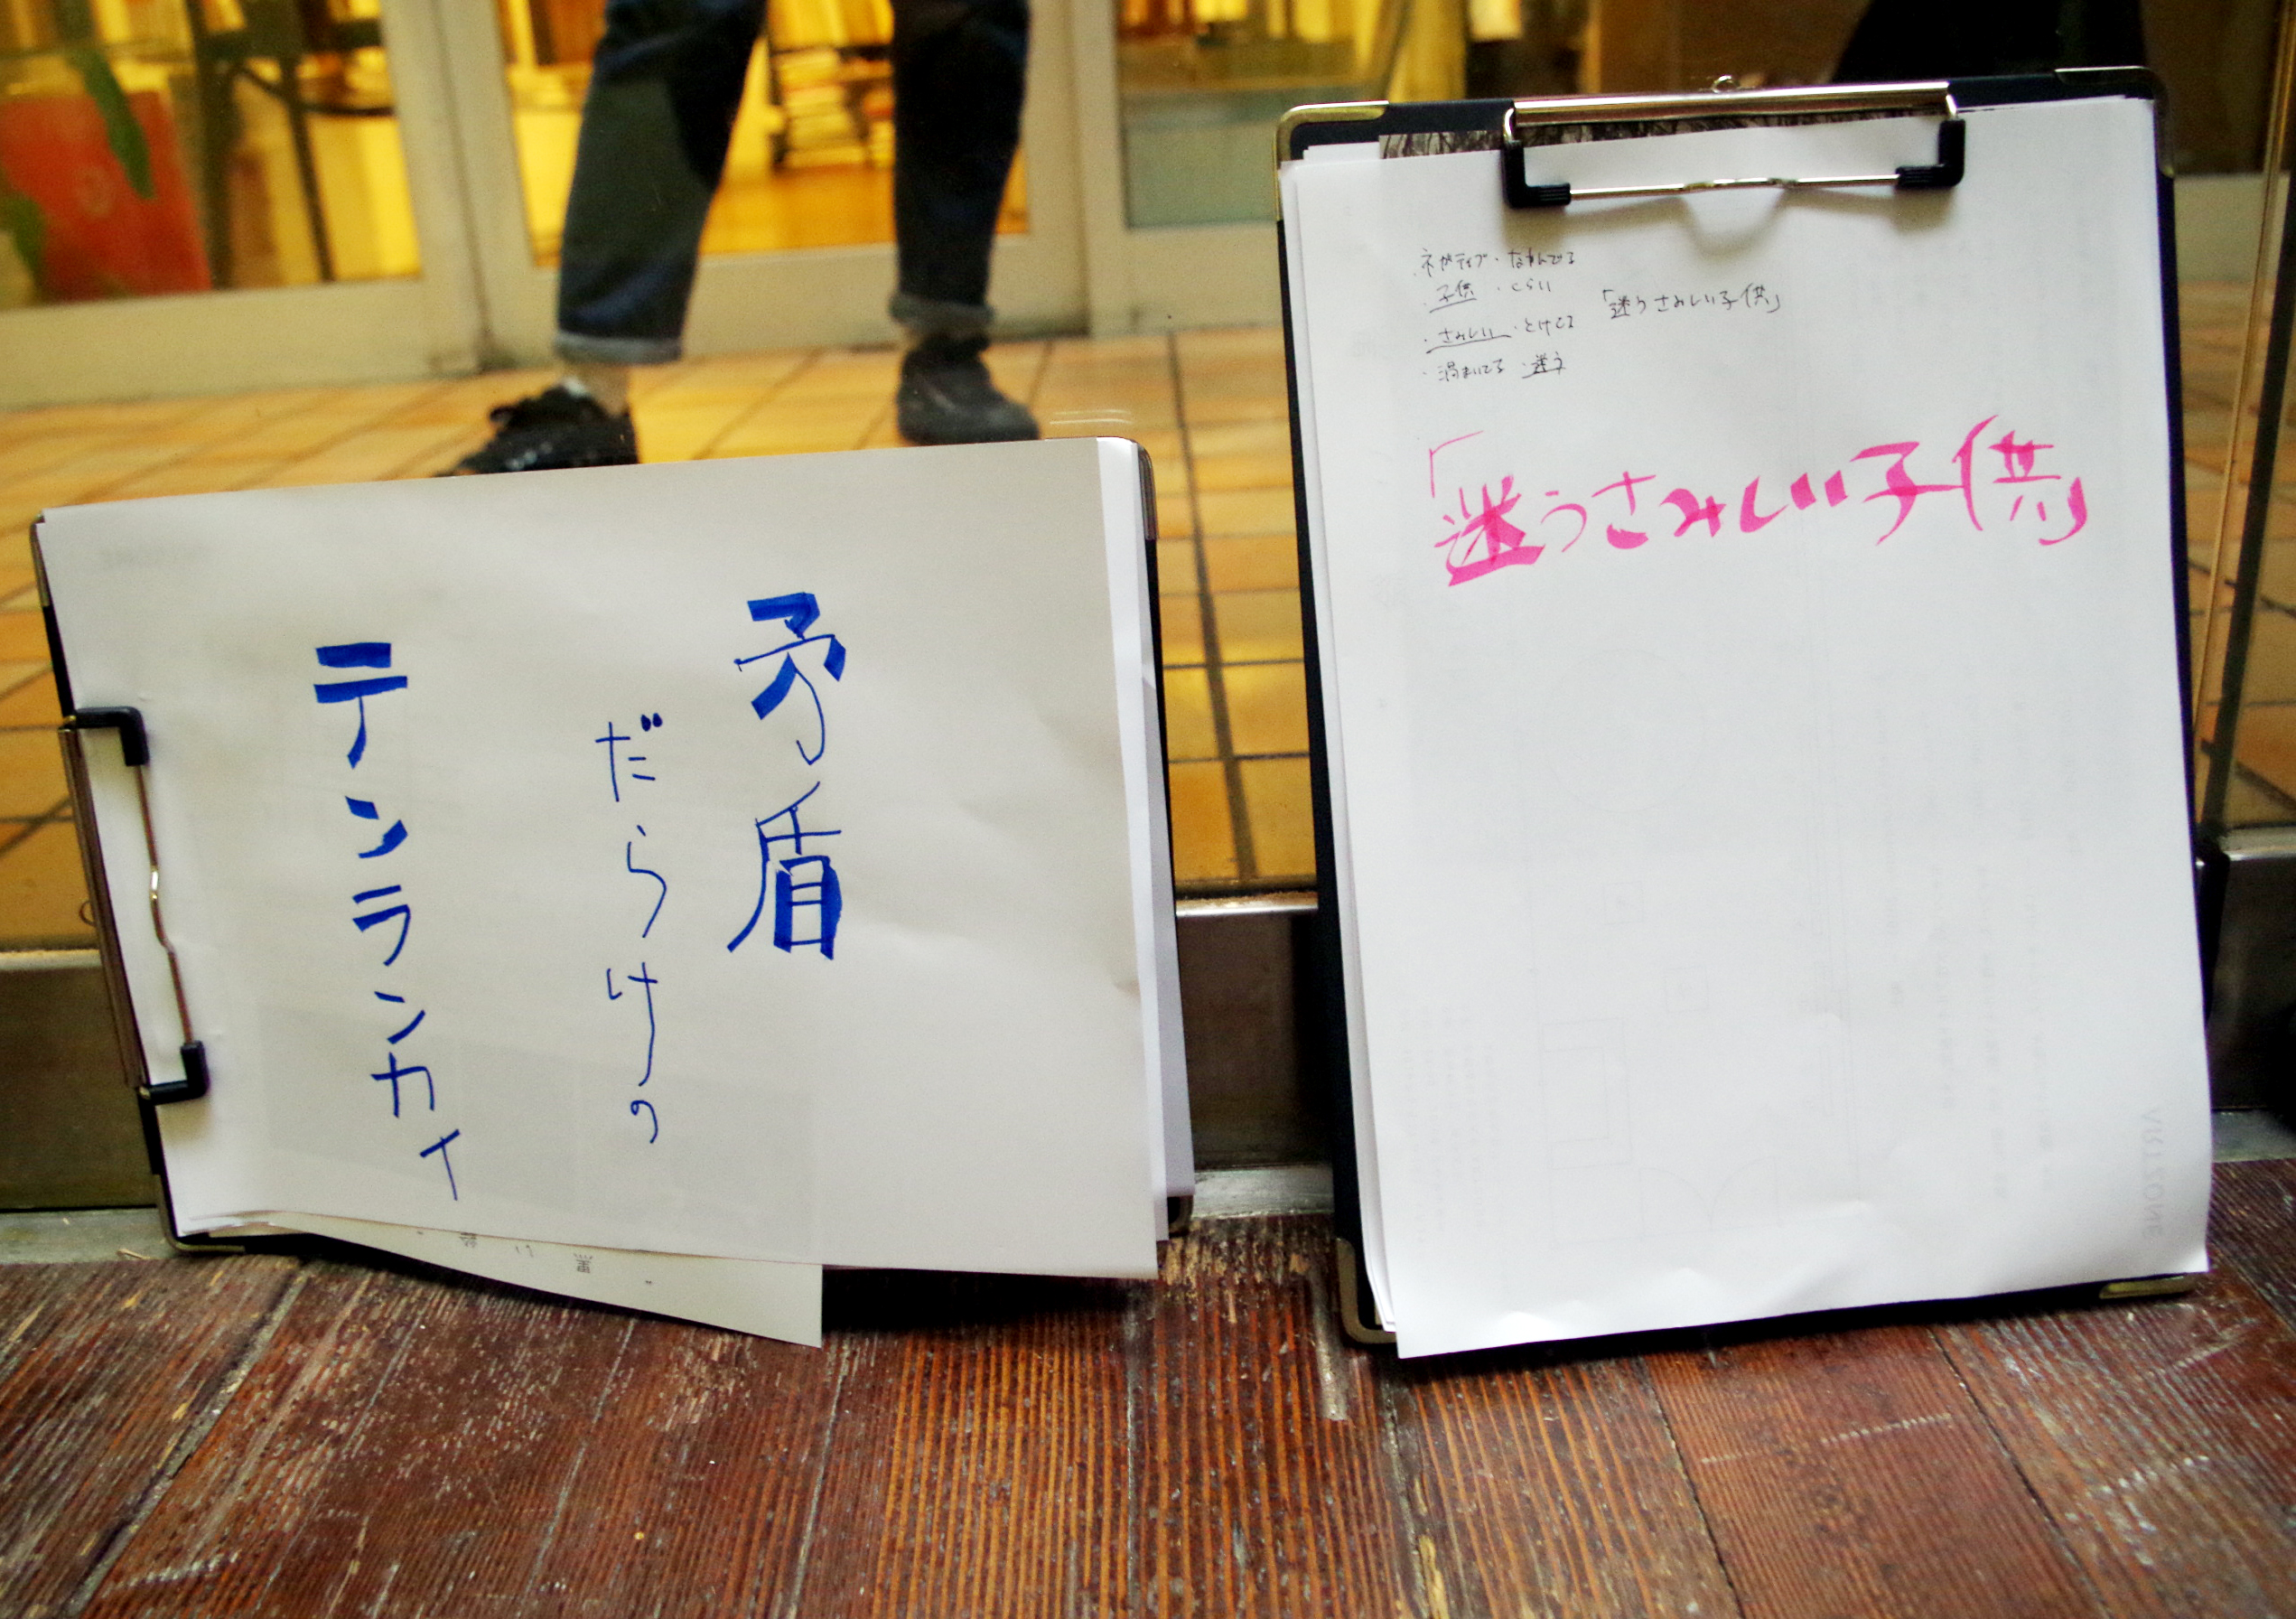 矛盾
だらけの
テンランカイ
ネガティブ・なやんでる
・子供 ・くらい
・さみしい ・とけてる
・渦まいてる ・迷う
「迷うさみしい子供」
「迷うさみしい子供」
ARTZONE